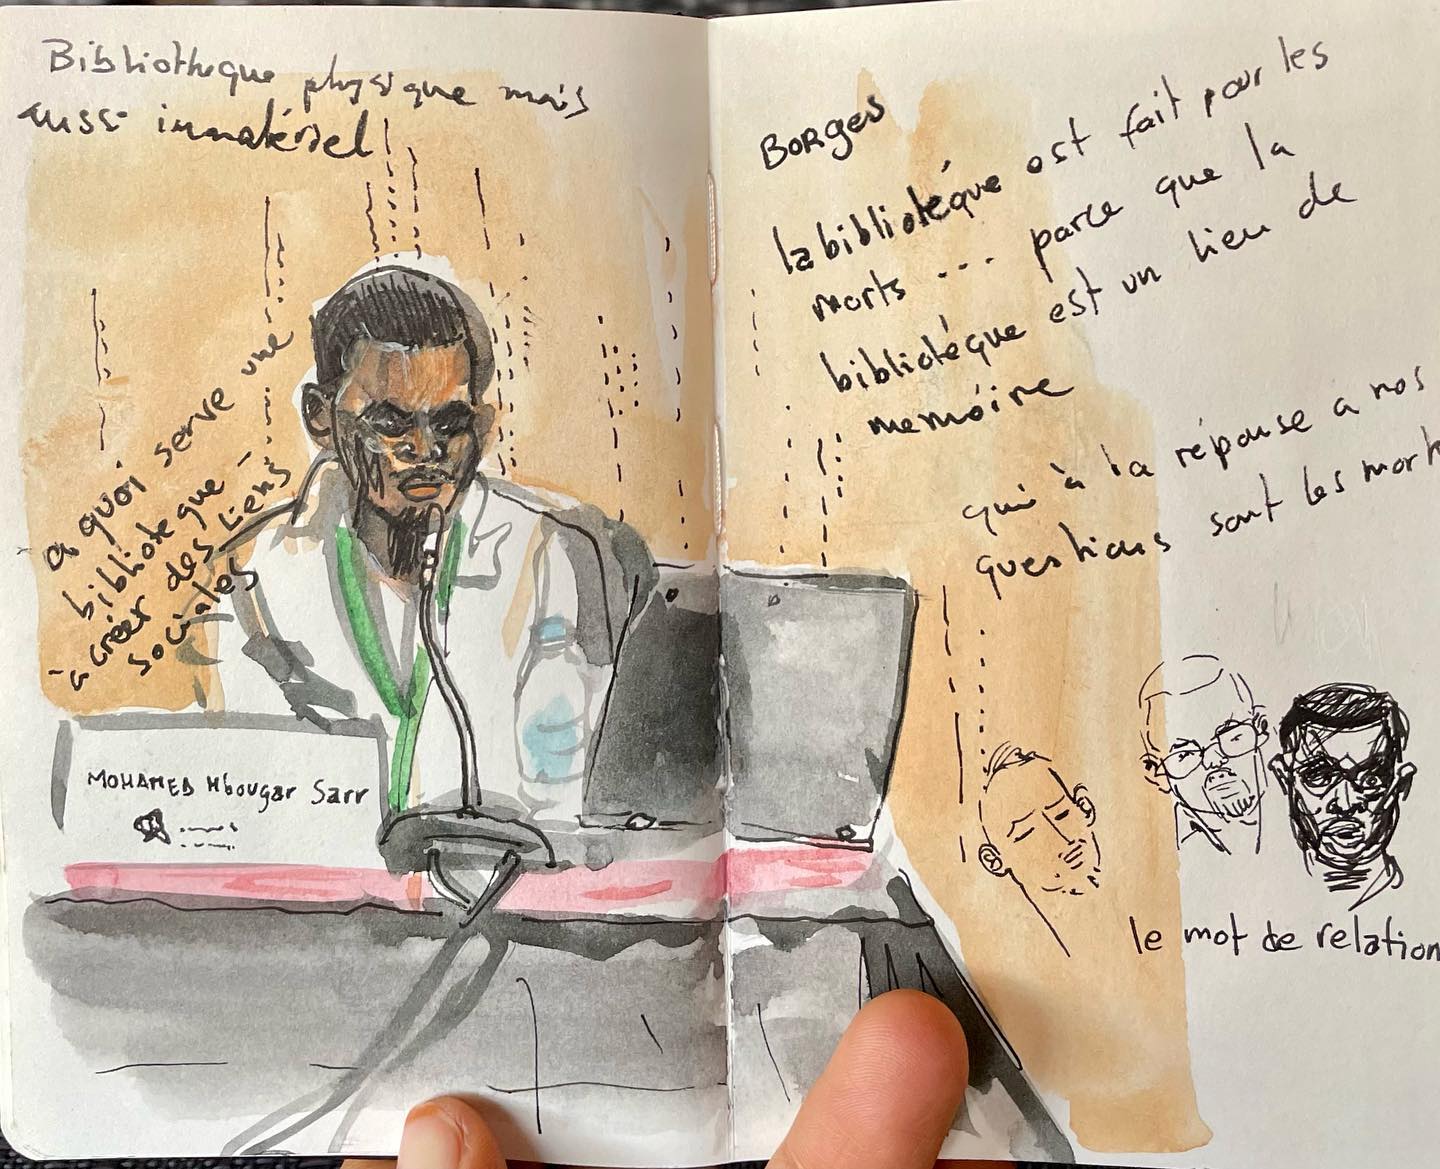 Bibliotheque physique mais
aussi immatériel
a quoi serve une
biblioteque
à créer des liens
sociales
MOHAMED Mbougar Sarr
BORGES
la bibliotéque est fait pour les
morts ... parce que la
bibliotéque est un lieu de
memóire
qui à la réponse a nos
questions sont les morts
le mot de relation